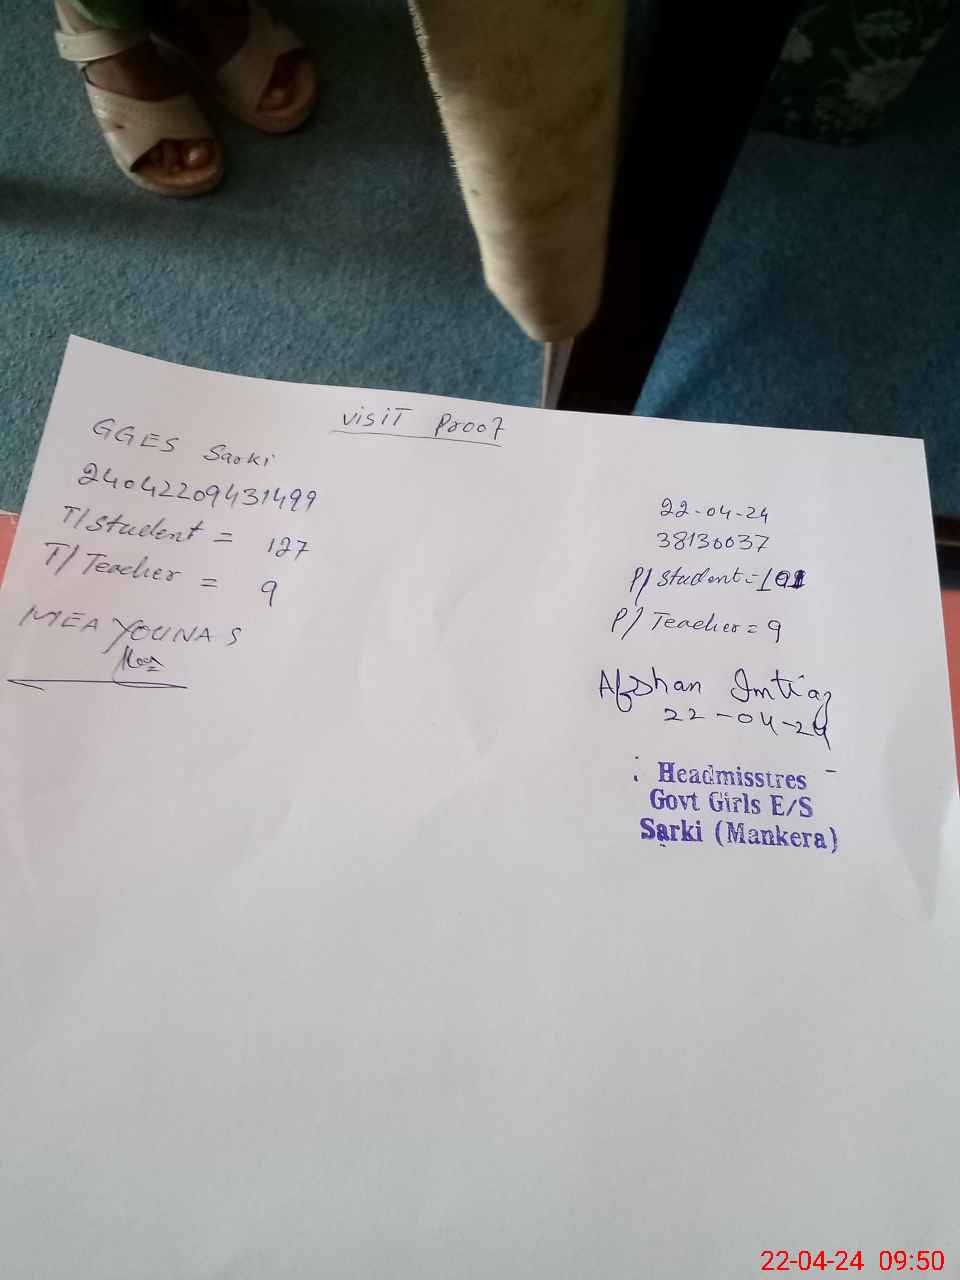 visit Proof
GGES Sarki
24042209431499
T/Student = 127
T/Teacher = 9
MEA YOUNAS
22-04-24
38130037
P/Student = 101
P/Teacher = 9
Afshan Imtiaz
22-04-24
Headmisstres
Govt Girls E/S
Sarki (Mankera)
22-04-24 09:50